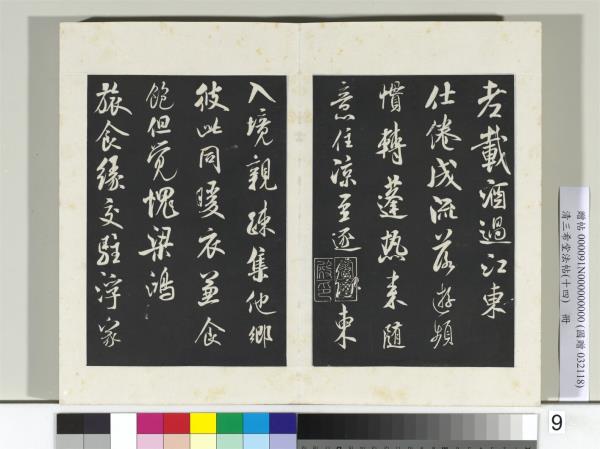 老載酒過江東
仕倦成流落遊頻
慣轉蓬熱來隨
意住涼至逐東
入境親疎集他鄉
彼此同暖衣兼食
飽但覺愧梁鴻
旅食緣交駐浮家
贈帖 000091N000000000 (國贈 032118)
清三希堂法帖(十四) 冊
9